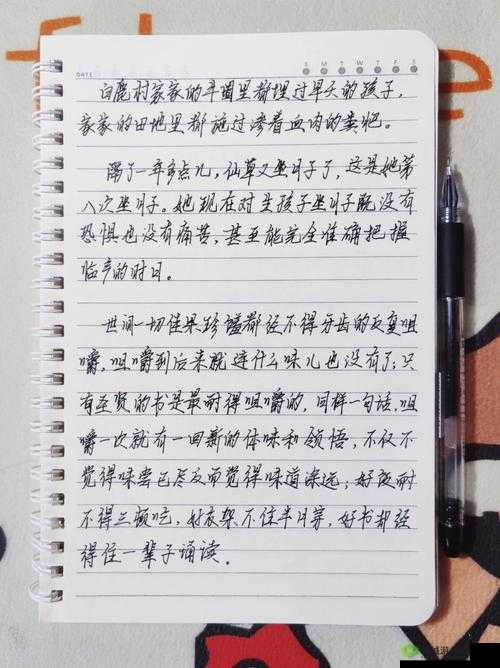 DATE S M T W T F S
白鹿村家家的牛圈里都埋过早夭的孩子,
家家的田地里都施过渗着血肉的粪肥。
隔了一年多点儿,仙草又坐月子了,这是她第
八次坐月子。她现在对生孩子坐月子既没有
恐惧也没有痛苦,甚至能完全准确把握
临产的时日。
世间一切佳果珍馐都经不得牙齿的反复咀
嚼,咀嚼到后来就连什么味儿也没有了;只
有圣贤的书是最耐得咀嚼的,同样一句话,咀
嚼一次就有一回新的体味和领悟,不仅不
觉得味尝已尽反而觉得味道深远;好饭耐
不得三顿吃,好衣架不住半月穿,好书却经
得住一辈子诵读。